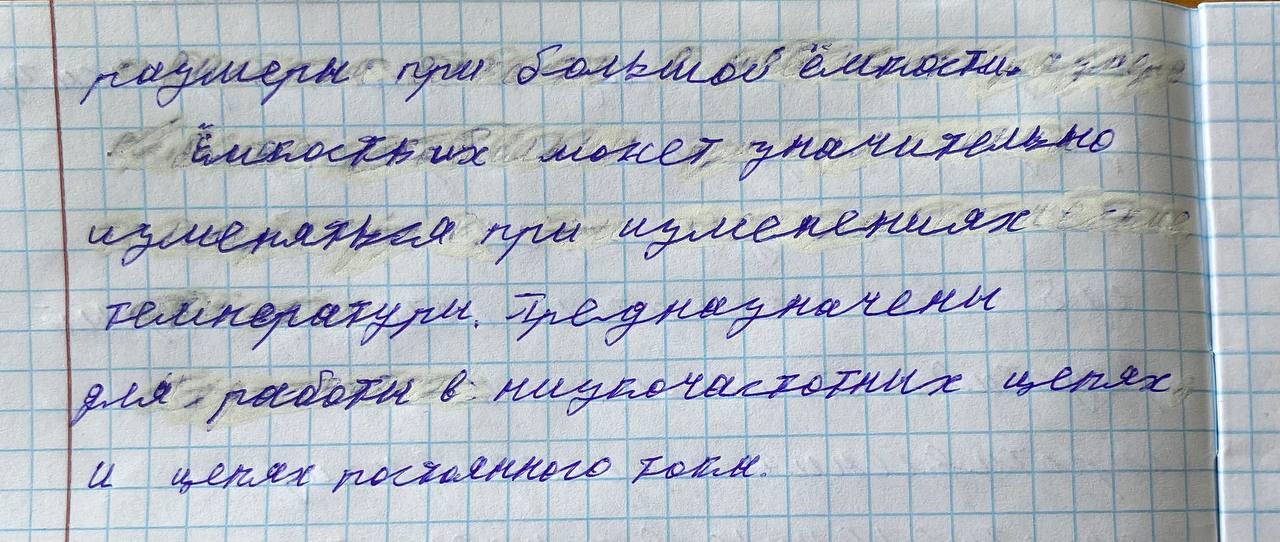 размеры при большой ёмкости.
Ёмкость их может значительно
изменяться при изменениях
температуры. Предназначены
для работы в низкочастотных цепях
и цепях постоянного тока.